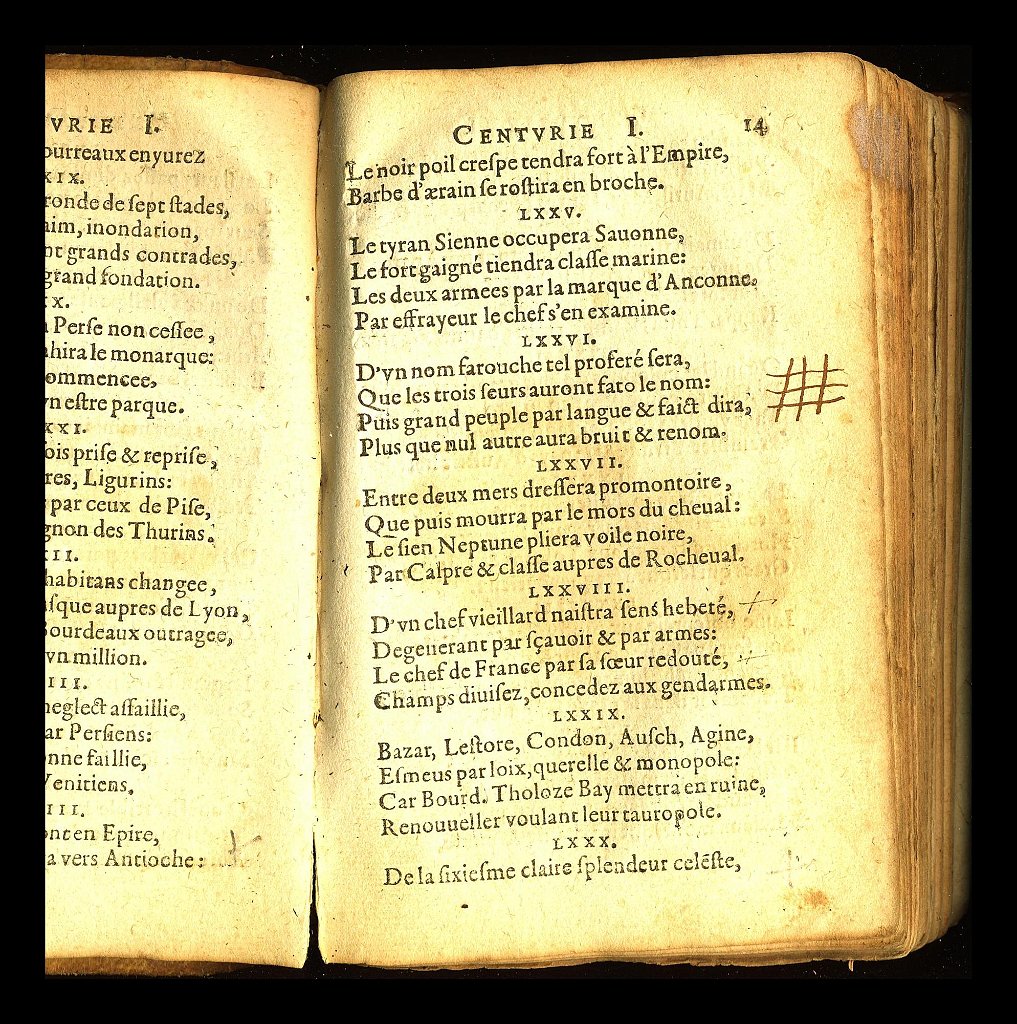 VRIE I.
ourreaux enyurez
XIX.
ronde de ſept ſtades,
aim, inondation,
nt grands contrades,
grand fondation.
XX.
Perſe non ceſſee,
ahira le monarque:
ommencee,
vn eſtre parque.
XXI.
ois priſe & repriſe,
res, Ligurins:
par ceux de Piſe,
gnon des Thurins.
XII.
habitans changee,
uſque aupres de Lyon,
Bourdeaux outragee,
vn million.
III.
neglect aſſaillie,
ar Perſiens:
onne faillie,
Venitiens.
IIII.
ont en Epire,
a vers Antioche:
CENTVRIE I. 14
Le noir poil creſpe tendra fort à l'Empire,
Barbe d'ærain ſe roſtira en broche.
LXXV.
Le tyran Sienne occupera Sauonne,
Le fort gaigné tiendra claſſe marine:
Les deux armees par la marque d'Anconne,
Par effrayeur le chef s'en examine.
LXXVI.
D'vn nom farouche tel proferé ſera,
Que les trois ſeurs auront fato le nom:
Puis grand peuple par langue & faict dira,
Plus que nul autre aura bruit & renom.
LXXVII.
Entre deux mers dreſſera promontoire,
Que puis mourra par le mors du cheual:
Le ſien Neptune pliera voile noire,
Par Calpre & claſſe aupres de Rocheual.
LXXVIII.
D'vn chef vieillard naiſtra ſens hebeté,
Degenerant par ſçauoir & par armes:
Le chef de France par ſa ſœur redouté,
Champs diuiſez, concedez aux gendarmes.
LXXIX.
Bazar, Leſtore, Condon, Auſch, Agine,
Eſmeus par loix, querelle & monopole:
Car Bourd. Tholoze Bay mettra en ruine,
Renouueller voulant leur tauropole.
LXXX.
De la ſixieſme claire ſplendeur celēſte,